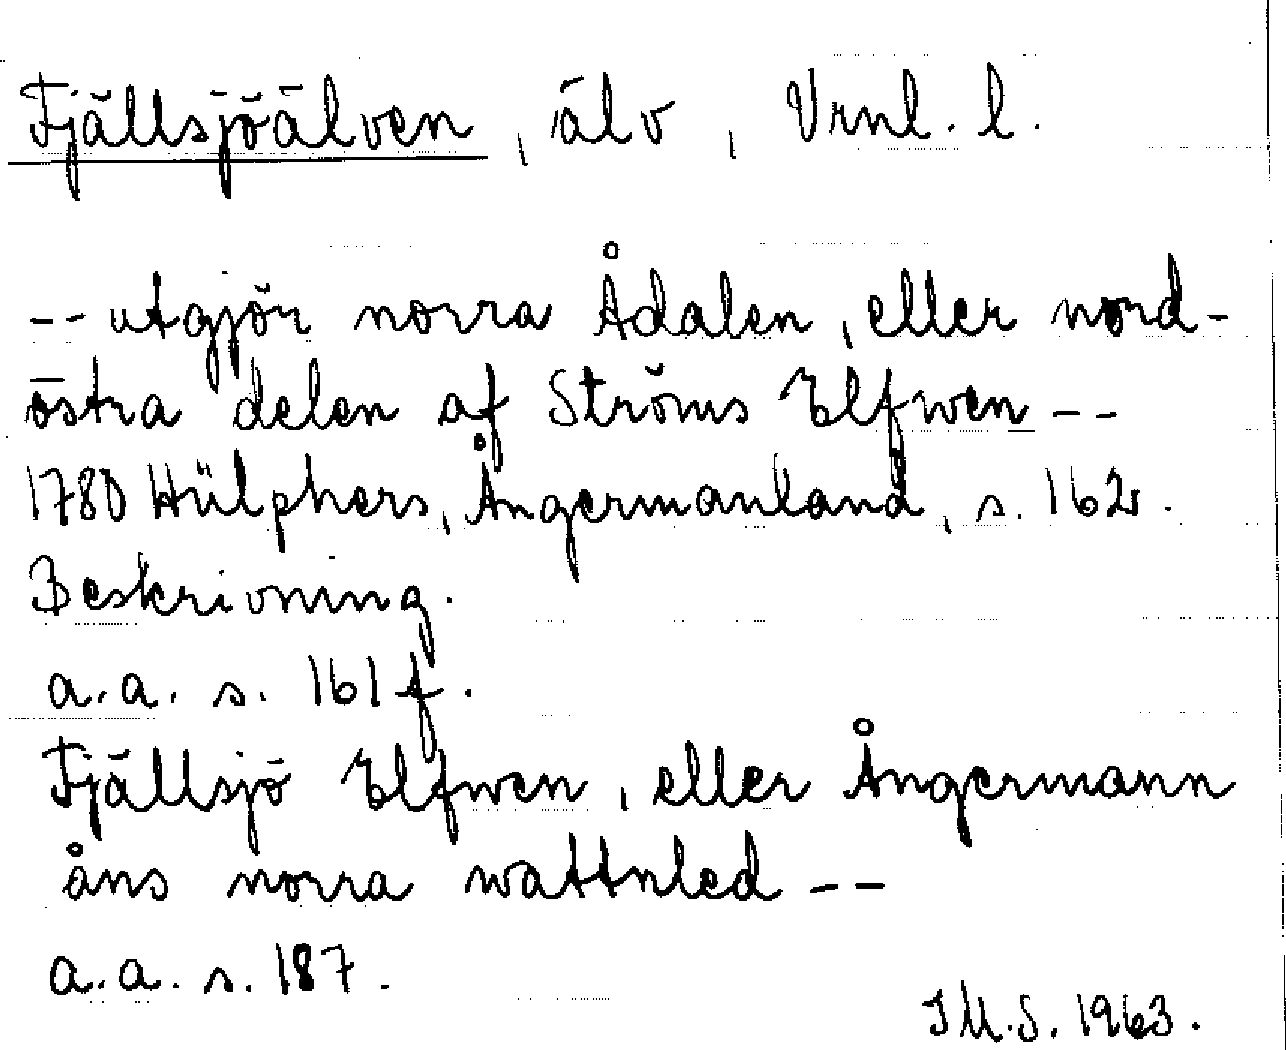 Fjällsjöälven, älv, Vrnl. l.
-- utgjör norra Ådalen, eller nord-
östra delen af Ströms Elfwen --
1780 Hülphers, Ångermanland, s. 162.
Beskrivning.
a.a. s. 161 f.
Fjällsjö Elfwen, eller Ångermann
åns norra wattnled --
a.a. s. 187.
I M.S. 1963.